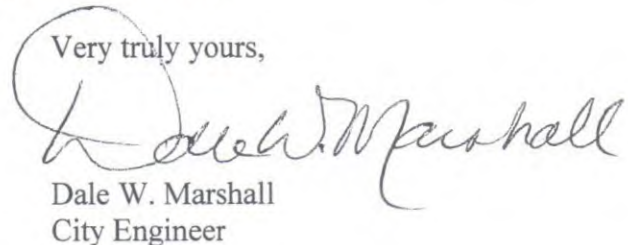 Very truly yours,
Dale W. Marshall
Dale W. Marshall
City Engineer